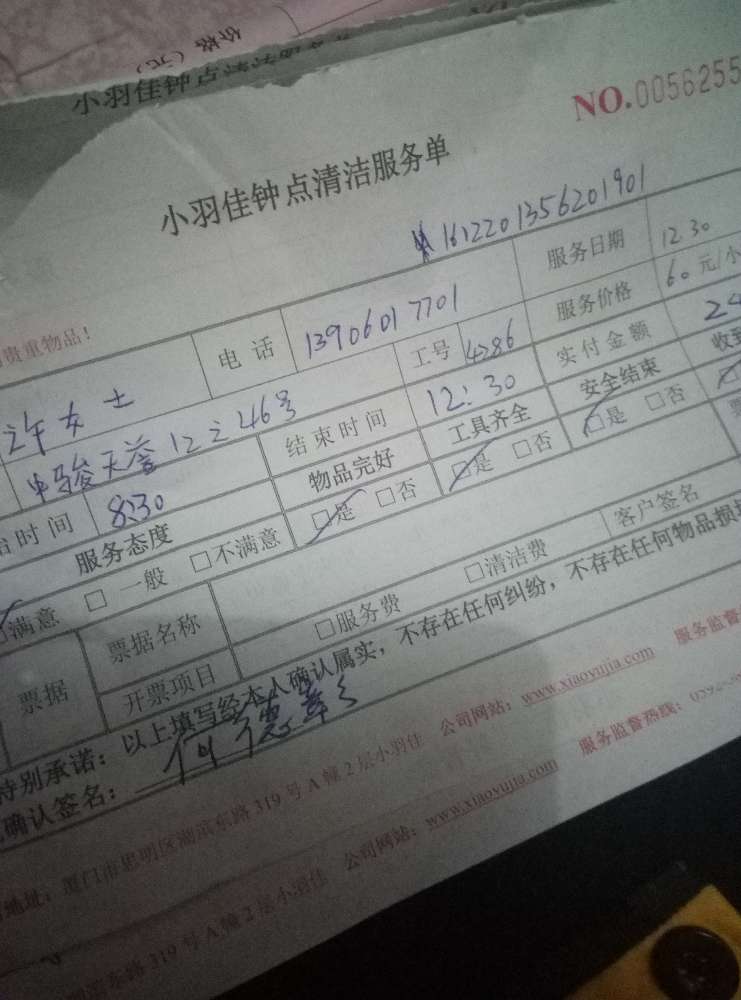 价格(元)
小羽佳钟点清洁服务单
NO.0056255
小羽佳钟点清洁服务单
1612201356201901
贵重物品!
电话 13906017701 服务日期 12.30
许女士 工号 4286 服务价格 60 元/小
骏天誉12之46号 结束时间 12:30 实付金额 24
时间 8:30 物品完好 工具齐全 安全结束 收到
服务态度 □是 □否 □是 □否 □是 □否
□满意 □一般 □不满意
票据 票据名称 □服务费 □清洁费 客户签名
开票项目
特别承诺:以上填写经本人确认属实,不存在任何纠纷,不存在任何物品损
确认签名:
地址:厦门市思明区湖滨东路319号A幢2层小羽佳 公司网站:www.xiaoyujia.com 服务监督
滨东路319号A幢2层小羽佳 公司网站:www.xiaoyujia.com 服务监督热线: